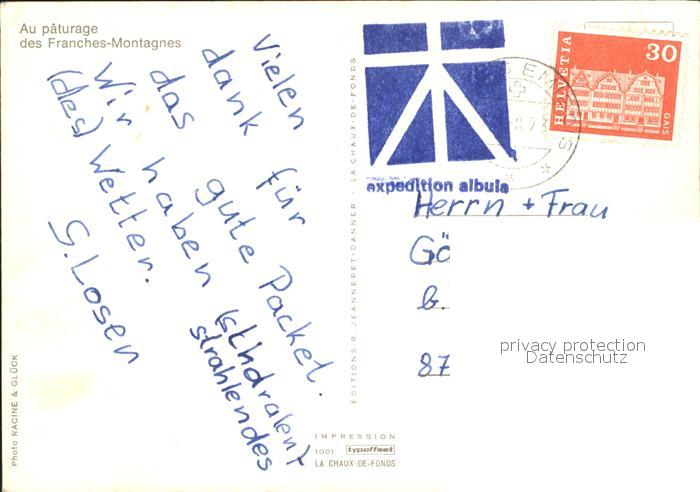 Au pâturage
des Franches-Montagnes
Vielen
dank für
das gute Packet.
Wir haben
strahlendes
(des) Wetter.
G. Losen
Photo RACINE & GLÜCK
EDITIONS R. JEANNERET-DANNER - LA CHAUX-DE-FONDS
IMPRESSION
1001 typoffset
LA CHAUX-DE-FONDS
expedition albula
HELVETIA
30
GAIS
Herrn + Frau
Gö
b.
87
privacy protection
Datenschutz